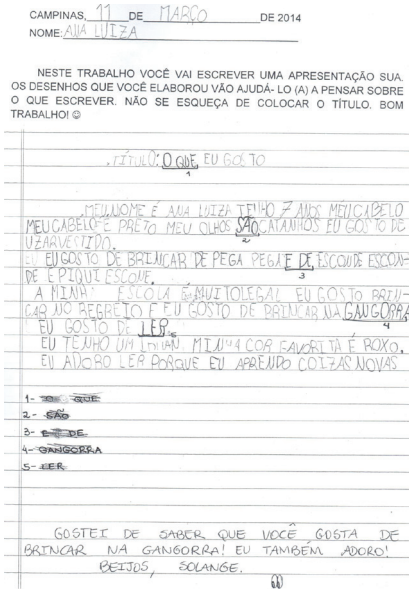 CAMPINAS, 11 DE MARÇO DE 2014
NOME: ANA LUIZA
NESTE TRABALHO VOCÊ VAI ESCREVER UMA APRESENTAÇÃO SUA.
OS DESENHOS QUE VOCÊ ELABOROU VÃO AJUDÁ- LO (A) A PENSAR SOBRE
O QUE ESCREVER. NÃO SE ESQUEÇA DE COLOCAR O TÍTULO. BOM
TRABALHO! ☺
TÍTULO: O QUE EU GOSTO
1
MEU NOME É ANA LUIZA TENHO 7 ANOS MEU CABELO
MEU CABELO É PRETO MEU OLHOS SÃO CATANHOS EU GOSTO DE
UZARVESTIDO. 2
EU EU GOSTO DE BRINCAR DE PEGA PEGA E DE ESCONDE ESCON-
DE E PIQUI ESCONE. 3
A MINHA ESCOLA É MUITOLEGAL EU GOSTO BRIN-
CAR NO REGREIO E EU GOSTO DE BRINCAR NA GANGORRA
EU GOSTO DE LER. 5 4
EU TENHO UM MINHA COR FAVORITA É ROXO.
EU ADORO LER PORQUE EU APRENDO COIZAS NOVAS
1- O QUE
2- SÃO
3- E DE
4- GANGORRA
5- LER
GOSTEI DE SABER QUE VOCÊ GOSTA DE
BRINCAR NA GANGORRA! EU TAMBÉM ADORO!
BEIJOS, SOLANGE.